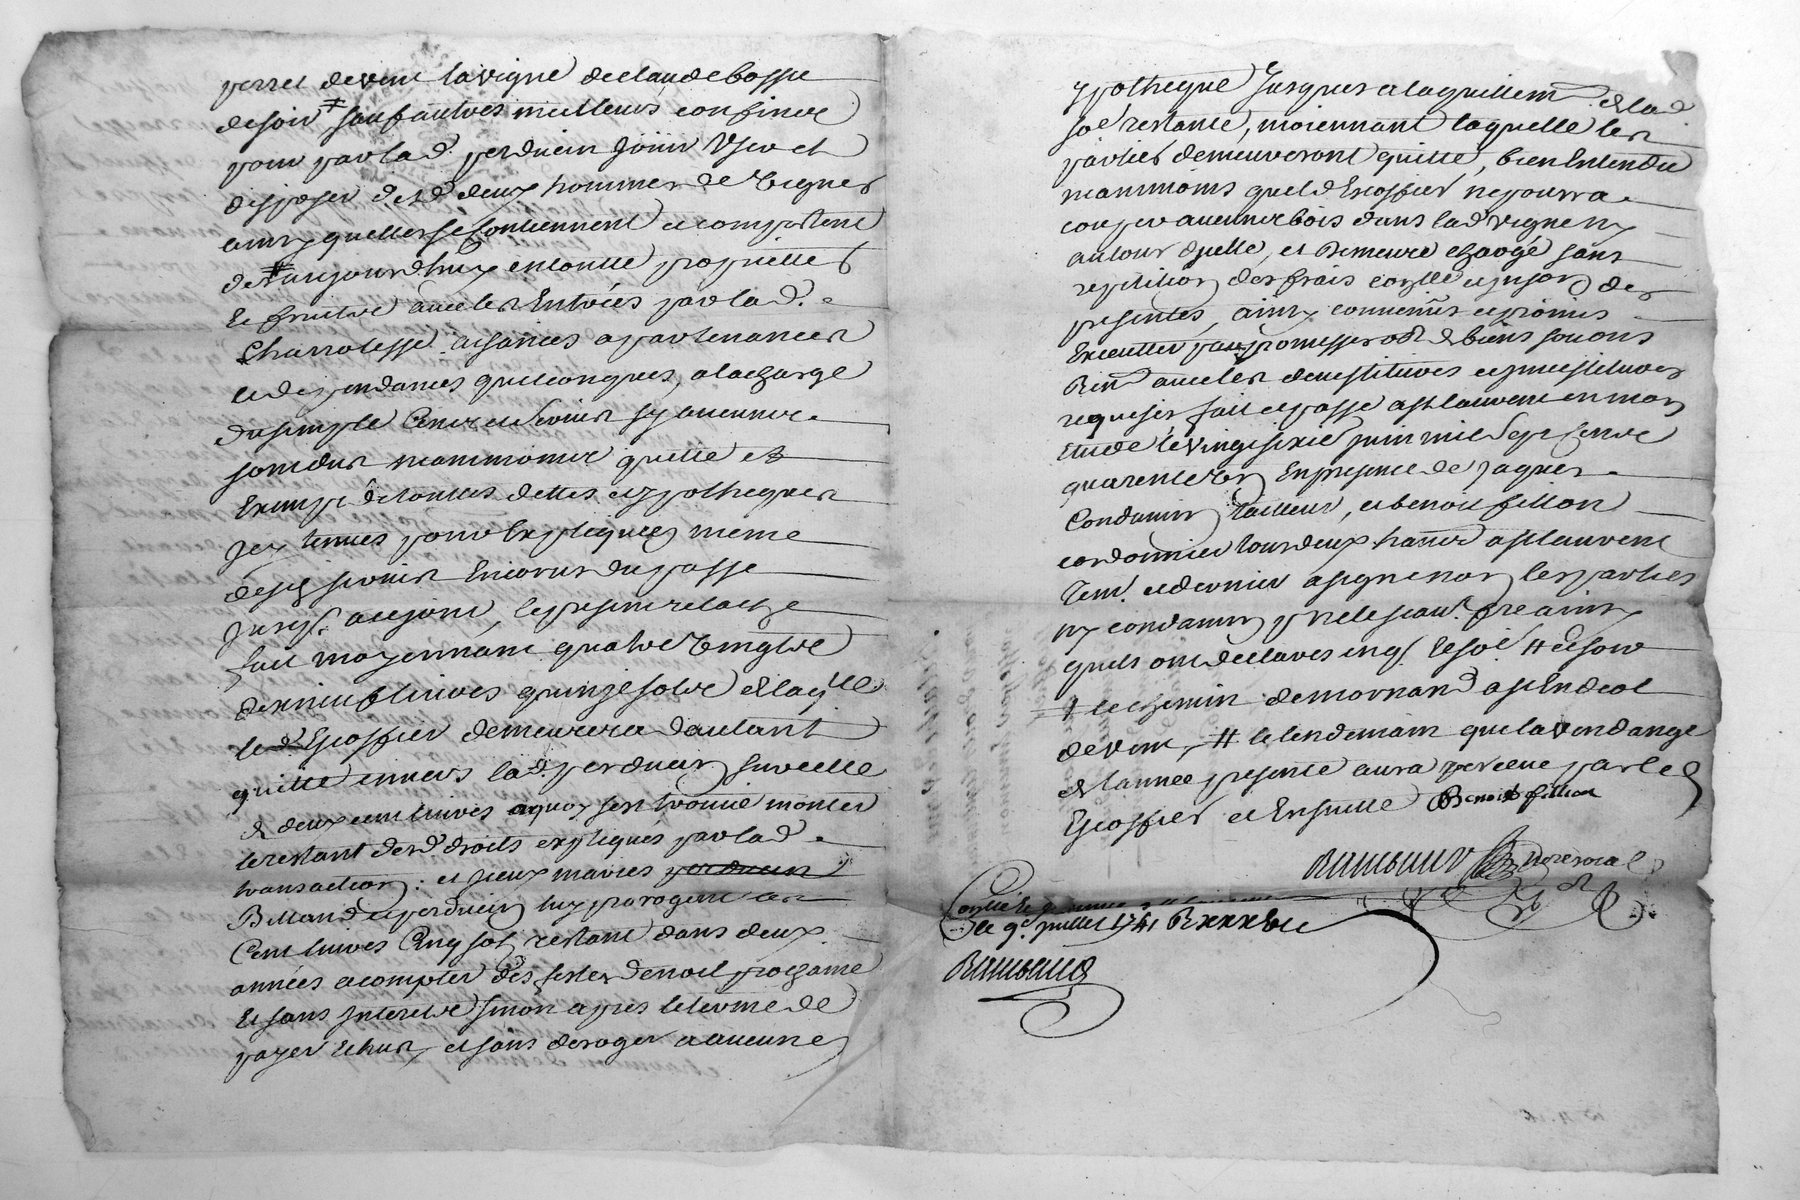 perret de vent la vigne de claude bossu
de soir # sauf autres meilleurs confins
pour par lad. perduein jouir user et
disposer desd. deux hommes de vignes
ainsy quelles se contiennent et comportent
de # aujourdhuy en toutte proprietté
et fruitte avec les entrées par lad.
aisances apartenances
et dependances quelconques, a la charge
du simple cens et servis sy aucun
sont dus neammoins quitte et
exempt de touttes dettes et ypotheques
jcy tenues pour expliquées meme
desd. servis encourus du passé
jusq. a ce jour, le present relache
fait moyennant quatre vingt
dix neuf livres quinze sols de laqlle
led Escoffier demeurera d'autant
quitte envers lad. perduein sur celle
de deux cent livres a quoy sest trouvé monter
le restant desd. droits expliqués par lad.
transaction. et jceux mariés perduein
Billand et perduein luy prorogent les
cent livres cinq sols restant dans deux
années a compter des festes de noel prochaine
et sans jnterest sinon apres le terme de
payer echus, et sans deroger a aucune
ypotheque jusques a laquittemt. de lad.
soe. restante, moiennant laquelle les
parties demeureront quitte, bien entendu
neammoins que led Escoffier ne pourra
couper aucuns bois dans lad vigne ny
autour d'yelle, et demeure chargé sans
repetition des frais controlle et expon des
presentes, ainsy convenus et promis
executter par promesses obl. de biens soumis
Ren. avec les demestitures et jnvestitures
requises, fait et passé a st laurent en mon
étude le vingt six juin mil sept cent
quarente un en presence de jaques
Condamin tailleur, et benoit fillon
cordonnier tous deux habt. a st laurent
tem. ce dernier a signé non les parties
ny condamin pour ne le scavoir faire ainsy
quils ont declaré enq. et soe. # de soir
# le chemin de mornand a st andeol
de vent, # le lendemain que la vendange
de l'année presente aura perceue par led
Escoffier et ensuitte Benoit fillion
le 9e juillet 1741 R xxx